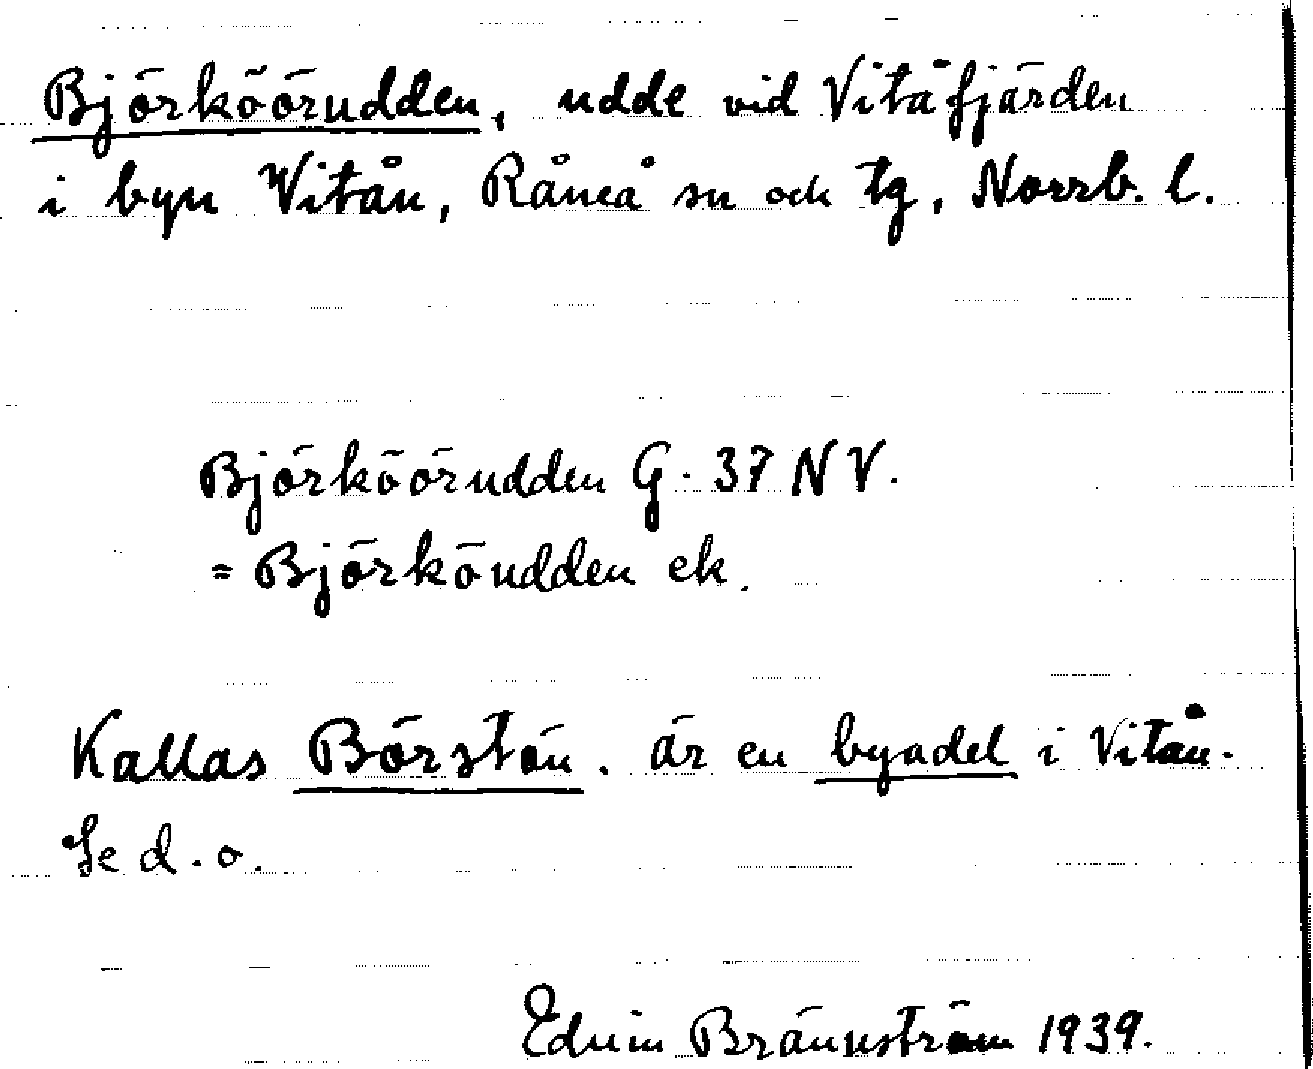 Björköörudden, udde vid Vitåfjärden
i byn Vitån, Råneå sn och tg, Norrb. l.
Björköörudden G. 37 NV.
= Björköudden ek.
Kallas Börstön. är en byadel i Vitån.
Se d. o.
Edvin Brännström 1939.